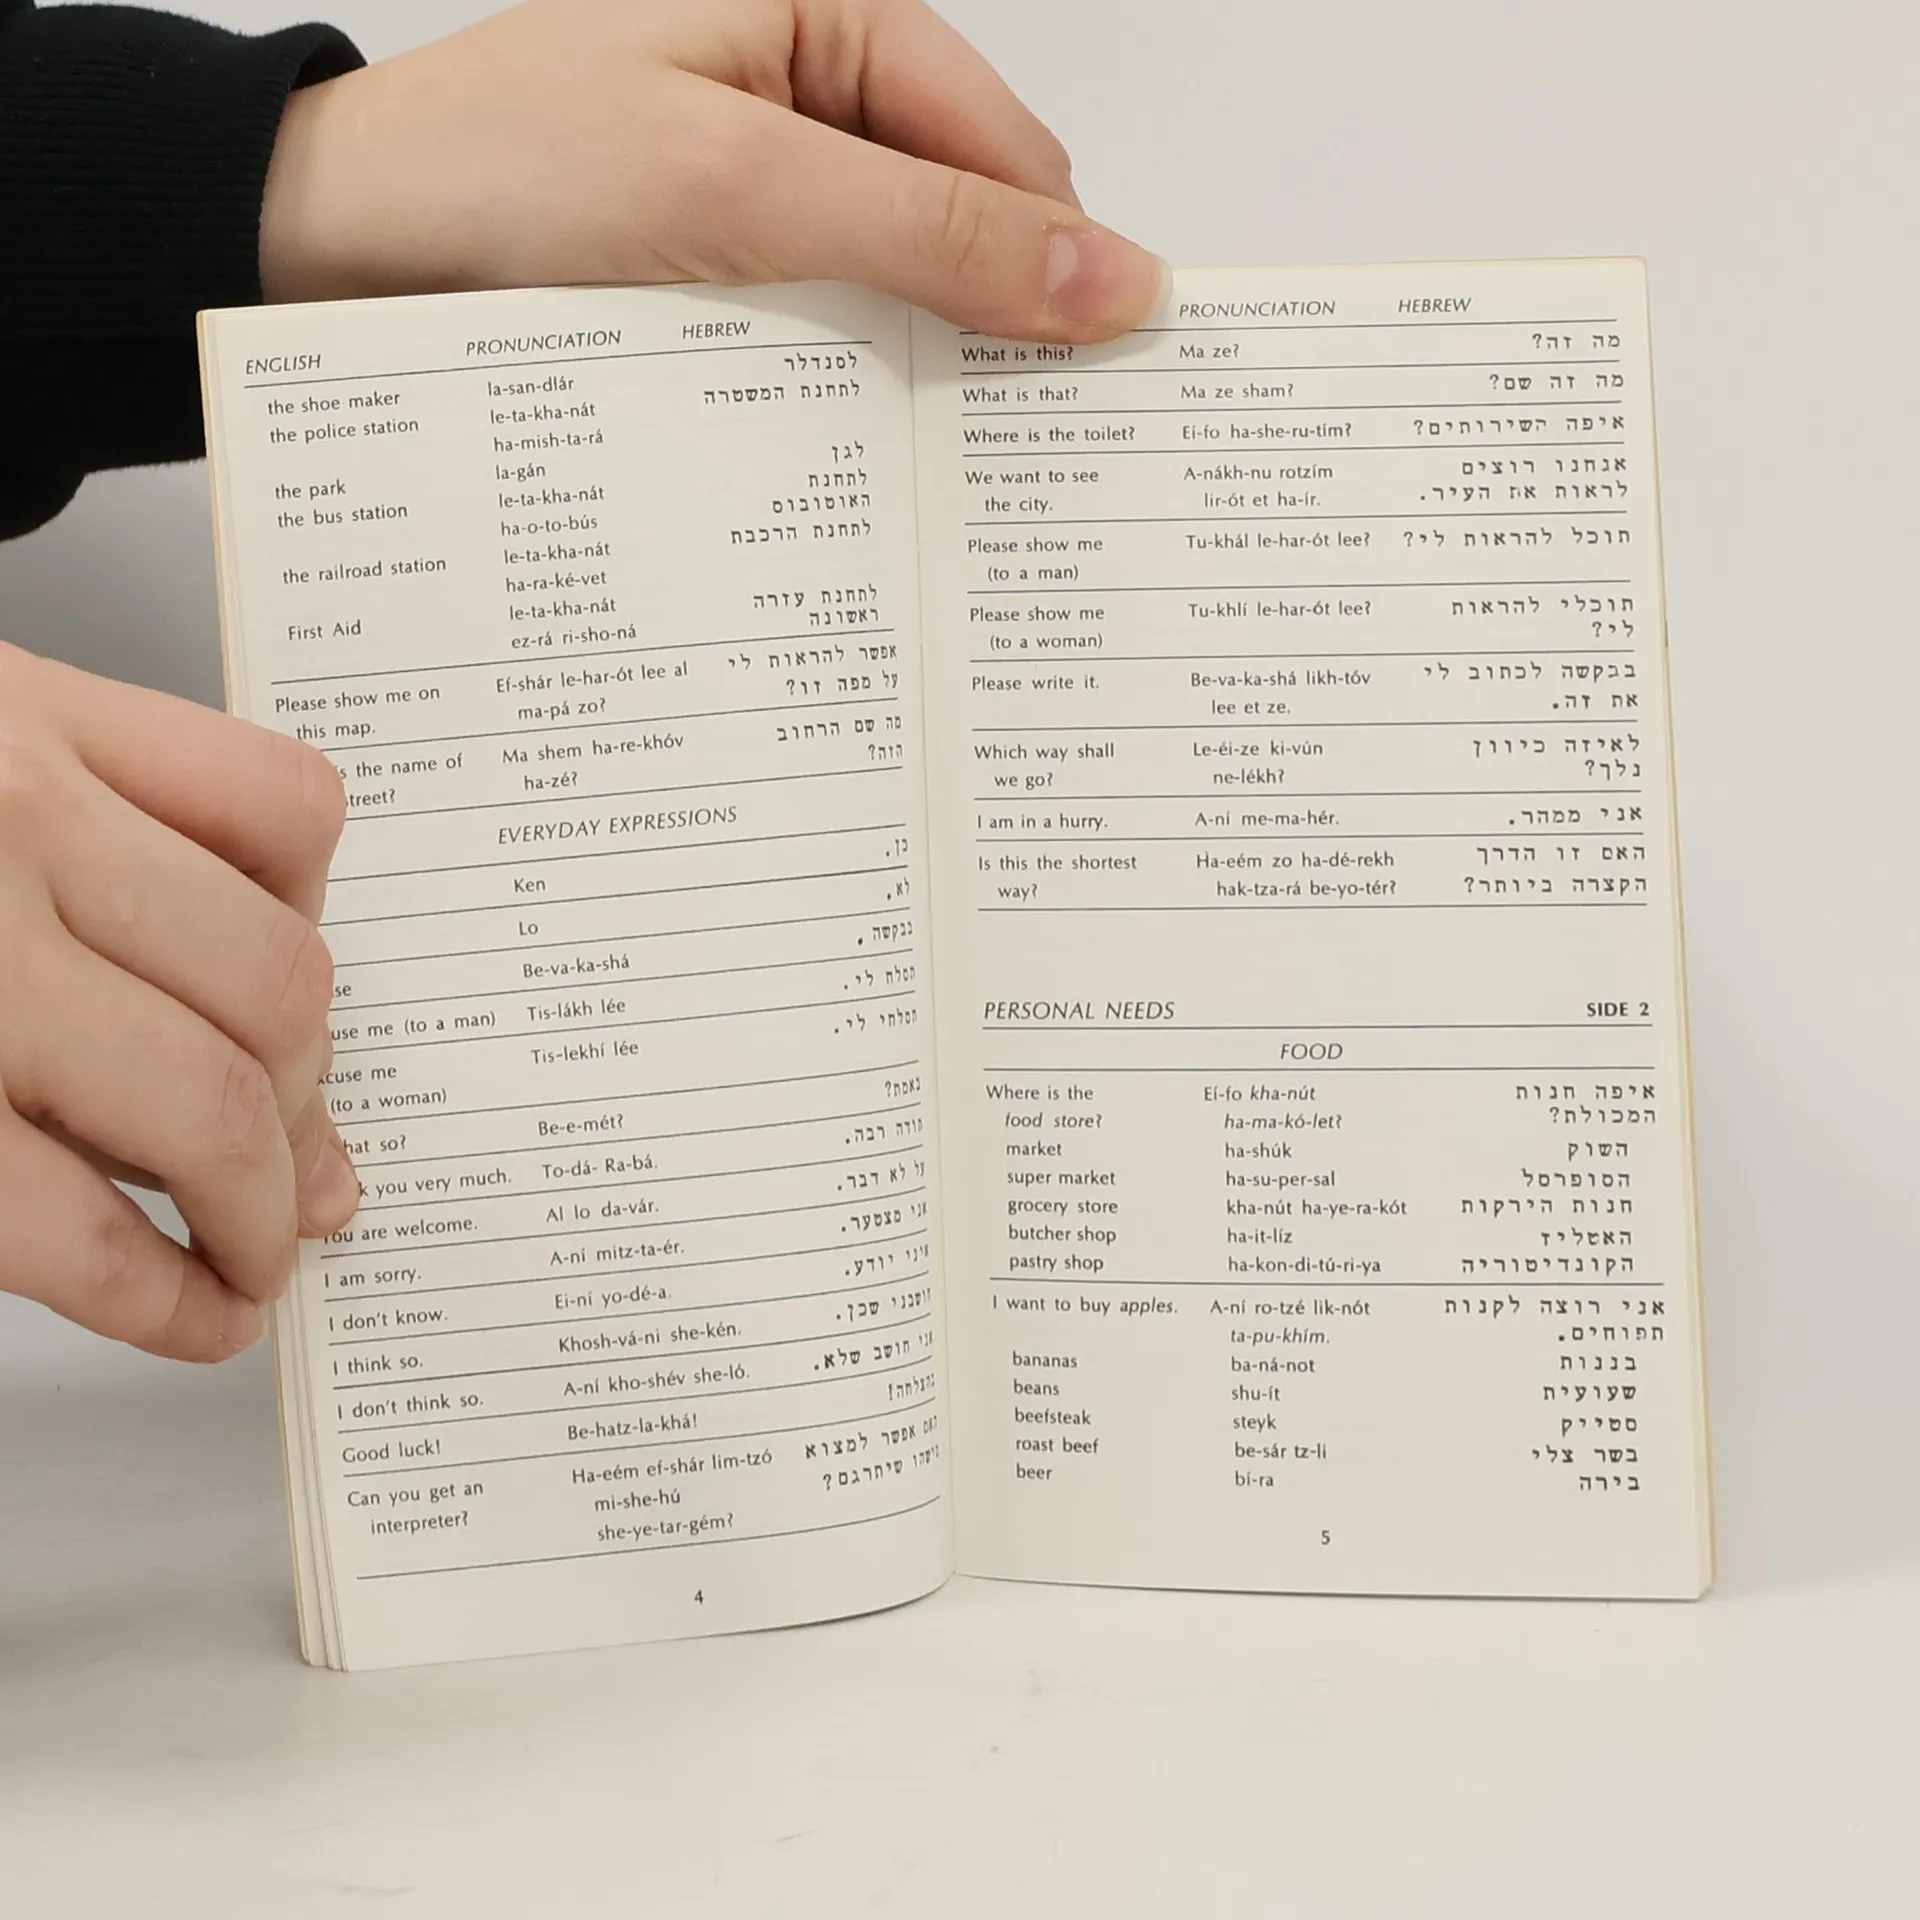 ENGLISH PRONUNCIATION HEBREW
the shoe maker la-san-dlár לסנדלר
the police station le-ta-kha-nát לתחנת המשטרה
ha-mish-ta-rá
the park la-gán לגן
the bus station le-ta-kha-nát לתחנת
ha-o-to-bús האוטובוס
the railroad station le-ta-kha-nát לתחנת הרכבת
ha-ra-ké-vet
First Aid le-ta-kha-nát לתחנת עזרה
ez-rá ri-sho-ná ראשונה
Please show me on Ef-shár le-har-ót lee al אפשר להראות לי
this map. ma-pá zo? על מפה זו?
the name of Ma shem ha-re-khóv מה שם הרחוב
ha-zé? הזה?
EVERYDAY EXPRESSIONS
Ken כן.
Lo לא.
Be-va-ka-shá בבקשה.
me (to a man) Tis-lákh lée תסלח לי.
me Tis-lekhí lée תסלחי לי.
(to a woman)
so? Be-e-mét? באמת?
you very much. To-dá- Ra-bá. תודה רבה.
You are welcome. Al lo da-vár. על לא דבר.
I am sorry. A-ní mitz-ta-ér. אני מצטער.
I don't know. Ei-ní yo-dé-a. איני יודע.
I think so. Khosh-vá-ni she-kén. חושבני שכן.
I don't think so. A-ní kho-shév she-ló. אני חושב שלא.
Good luck! Be-hatz-la-khá! בהצלחה!
Can you get an Ha-eém ef-shár lim-tzó האם אפשר למצוא
interpreter? mi-she-hú מישהו שיתרגם?
she-ye-tar-gém?
4
PRONUNCIATION HEBREW
What is this? Ma ze? מה זה?
What is that? Ma ze sham? מה זה שם?
Where is the toilet? Eí-fo ha-she-ru-tím? איפה השירותים?
We want to see A-nákh-nu rotzím אנחנו רוצים
the city. lir-ót et ha-ír. לראות את העיר.
Please show me Tu-khál le-har-ót lee? תוכל להראות לי?
(to a man)
Please show me Tu-khlí le-har-ót lee? תוכלי להראות
(to a woman) לי?
Please write it. Be-va-ka-shá likh-tóv בבקשה לכתוב לי
lee et ze. את זה.
Which way shall Le-éi-ze ki-vún לאיזה כיוון
we go? ne-lékh? נלך?
I am in a hurry. A-ní me-ma-hér. אני ממהר.
Is this the shortest Ha-eém zo ha-dé-rekh האם זו הדרך
way? hak-tza-rá be-yo-tér? הקצרה ביותר?
PERSONAL NEEDS SIDE 2
FOOD
Where is the Eí-fo kha-nút איפה חנות
food store? ha-ma-kó-let? המכולת?
market ha-shúk השוק
super market ha-su-per-sal הסופרסל
grocery store kha-nút ha-ye-ra-kót חנות הירקות
butcher shop ha-it-líz האטליז
pastry shop ha-kon-di-tú-ri-ya הקונדיטוריה
I want to buy apples. A-ní ro-tzé lik-nót אני רוצה לקנות
ta-pu-khím. תפוחים.
bananas ba-ná-not בננות
beans shu-ít שעועית
beefsteak steyk סטייק
roast beef be-sár tz-li בשר צלי
beer bí-ra בירה
5